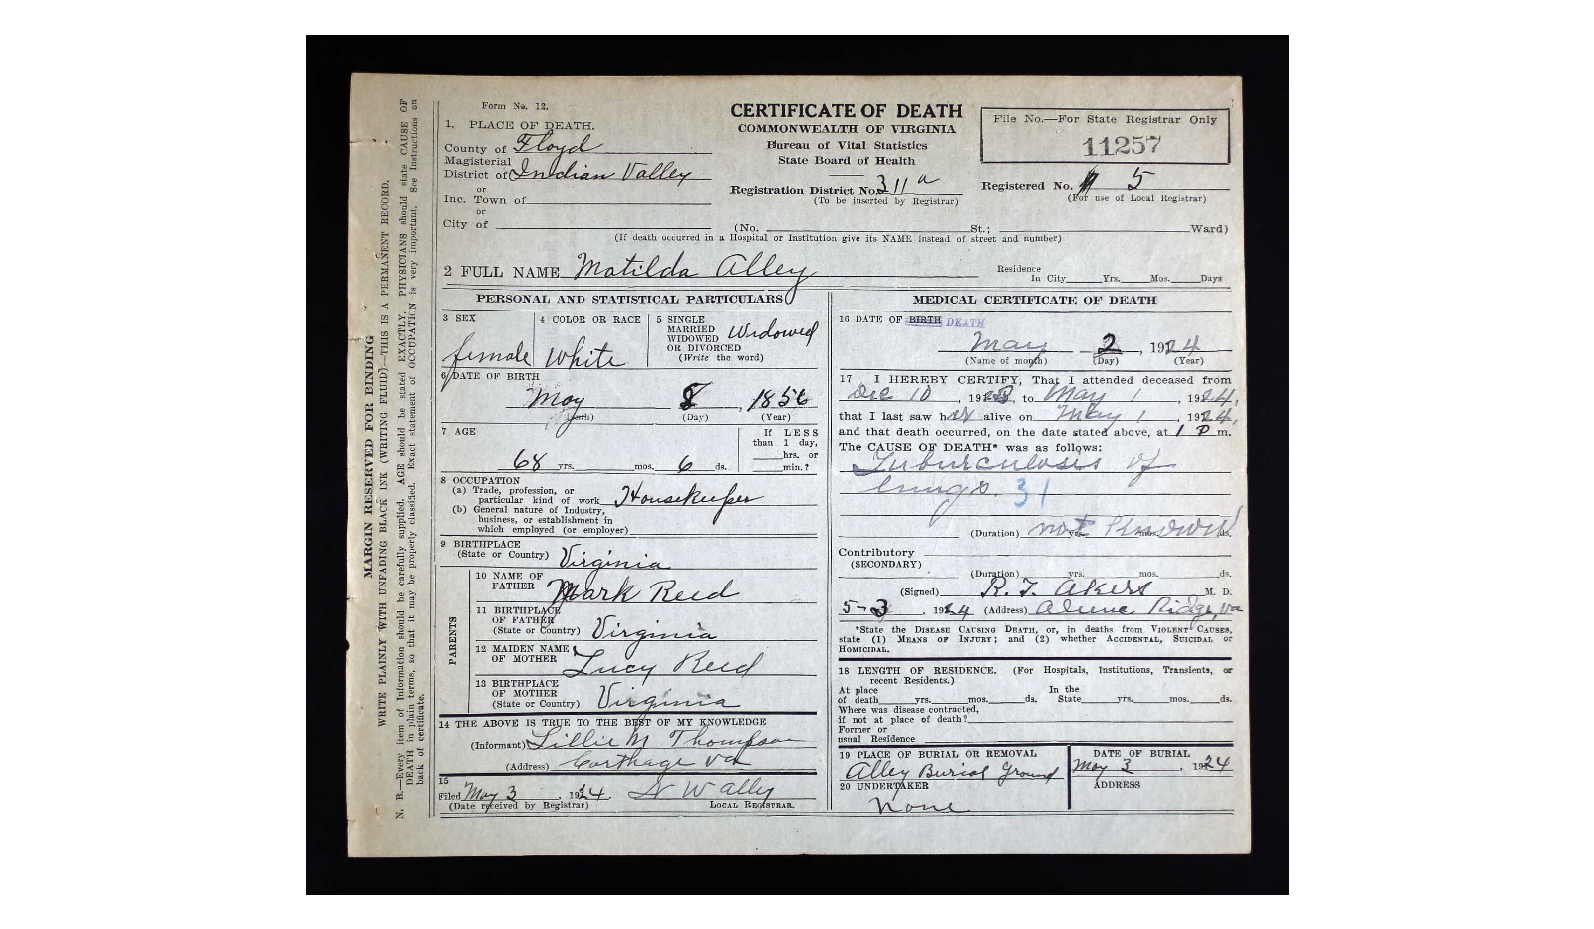 MARGIN RESERVED FOR BINDING
WRITE PLAINLY WITH UNFADING BLACK INK (WRITING FLUID)—THIS IS A PERMANENT RECORD.
N. B.—Every item of Information should be carefully supplied. AGE should be stated EXACTLY. PHYSICIANS should state CAUSE OF
DEATH in plain terms, so that it may be properly classified. Exact statement of OCCUPATION is very important. See Instructions on
back of certificate.
Form No. 12.
1. PLACE OF DEATH.
County of Floyd
Magisterial
District of Indian Valley
or
Inc. Town of
or
City of
CERTIFICATE OF DEATH
COMMONWEALTH OF VIRGINIA
Bureau of Vital Statistics
State Board of Health
Registration District No. 311a
(To be inserted by Registrar)
File No.—For State Registrar Only
11257
Registered No. 5
(For use of Local Registrar)
(No. St.; Ward)
(If death occurred in a Hospital or Institution give its NAME instead of street and number)
2 FULL NAME Matilda Alley
Residence
In City Yrs. Mos. Days
PERSONAL AND STATISTICAL PARTICULARS
3 SEX
female
4 COLOR OR RACE
White
5 SINGLE
MARRIED
WIDOWED
OR DIVORCED
(Write the word)
Widowed
6 DATE OF BIRTH
May 8, 1856
(Day) (Year)
7 AGE
68 yrs. mos. 6 ds.
If LESS
than 1 day,
hrs. or
min.?
8 OCCUPATION
(a) Trade, profession, or
particular kind of work Housekeeper
(b) General nature of Industry,
business, or establishment in
which employed (or employer)
9 BIRTHPLACE
(State or Country) Virginia
PARENTS
10 NAME OF
FATHER Mark Reed
11 BIRTHPLACE
OF FATHER
(State or Country) Virginia
12 MAIDEN NAME
OF MOTHER Lucy Reed
13 BIRTHPLACE
OF MOTHER
(State or Country) Virginia
14 THE ABOVE IS TRUE TO THE BEST OF MY KNOWLEDGE
(Informant) Lillie M Thompson
(Address) Carthage Va
15
Filed May 3, 1924. W Alley
(Date received by Registrar) LOCAL REGISTRAR.
MEDICAL CERTIFICATE OF DEATH
16 DATE OF BIRTH DEATH
May 2, 1924
(Name of month) (Day) (Year)
17 I HEREBY CERTIFY, That I attended deceased from
Dec 10, 1923, to May 1, 1924,
that I last saw her alive on May 1, 1924,
and that death occurred, on the date stated above, at 1 P m.
The CAUSE OF DEATH* was as follows:
Tuburculosis of
lungs. 31
(Duration) not Knowed yrs. mos. ds.
Contributory
(SECONDARY)
(Duration) yrs. mos. ds.
(Signed) R. F. Akers M. D.
5-3, 1924 (Address) Alum Ridge, Va
*State the DISEASE CAUSING DEATH, or, in deaths from VIOLENT CAUSES,
state (1) MEANS OF INJURY; and (2) whether ACCIDENTAL, SUICIDAL or
HOMICIDAL.
18 LENGTH OF RESIDENCE. (For Hospitals, Institutions, Transients, or
recent Residents.)
At place In the
of death yrs. mos. ds. State yrs. mos. ds.
Where was disease contracted,
if not at place of death?
Former or
usual Residence
19 PLACE OF BURIAL OR REMOVAL
Alley Burial Ground
DATE OF BURIAL
May 3, 1924
20 UNDERTAKER
None
ADDRESS